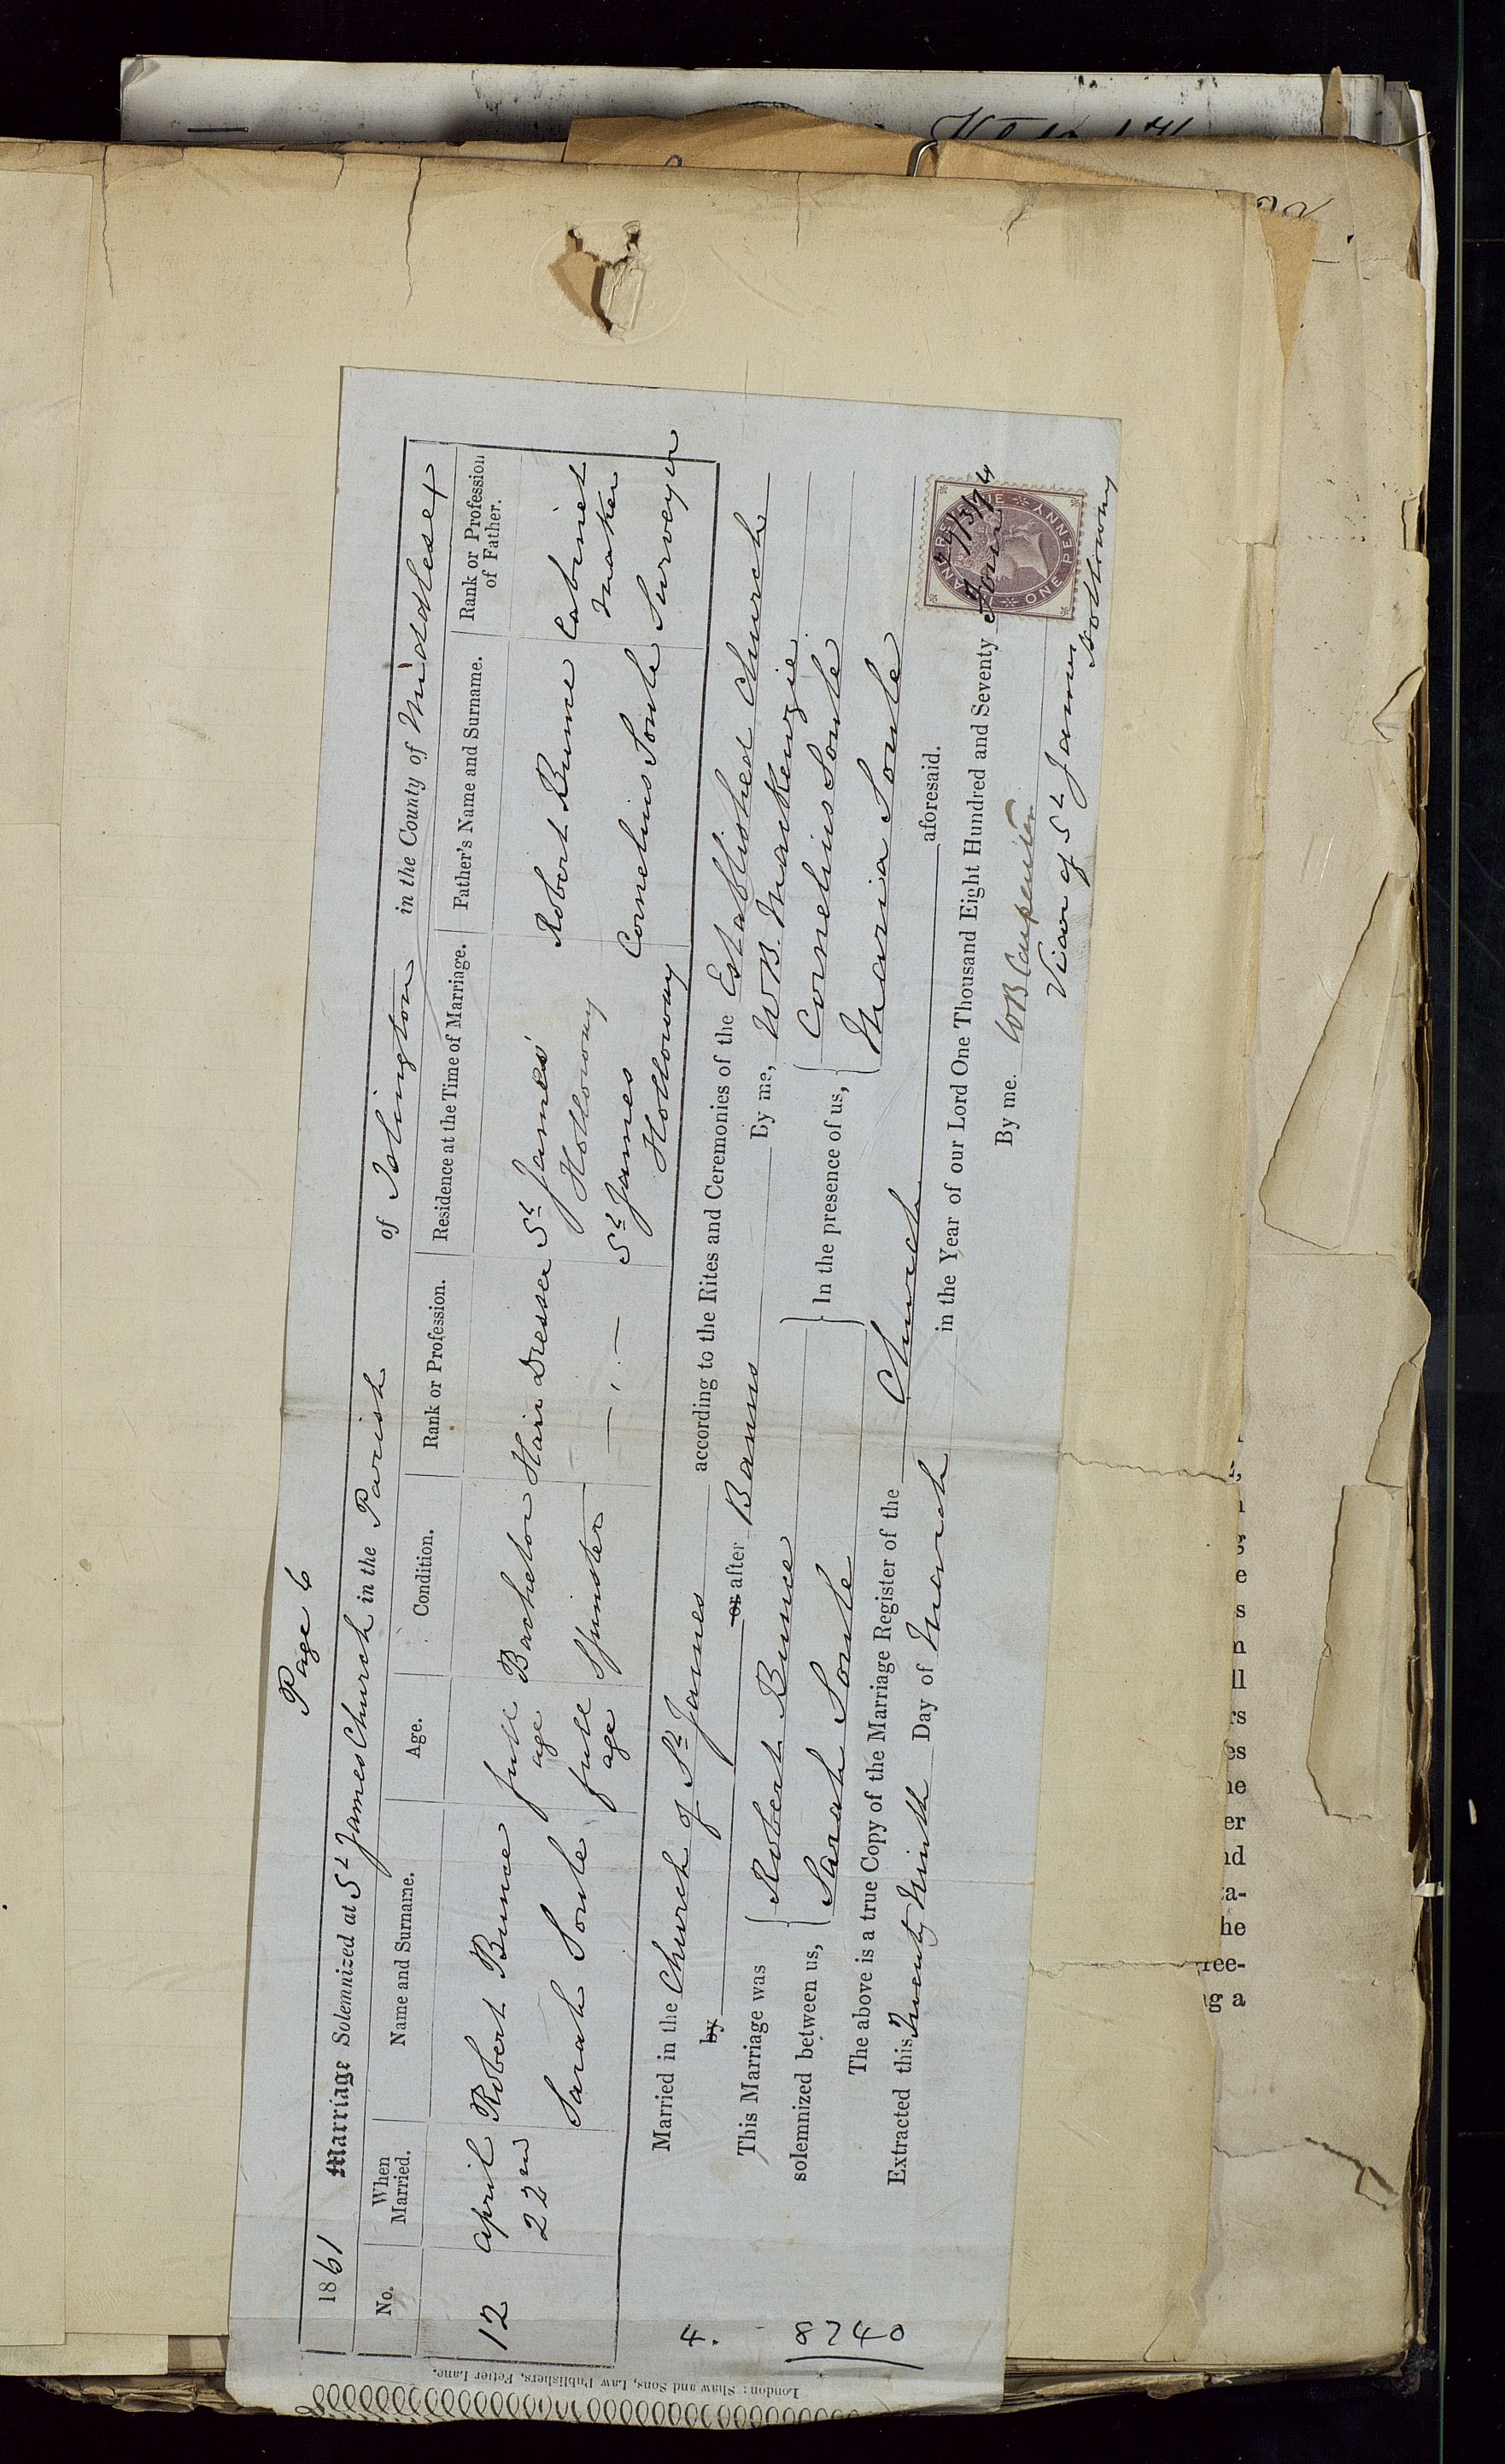 Page 6
1861 Marriage Solemnized at St James Church in the Parish of Islington in the County of Middlesex
No. When Married. Name and Surname. Age. Condition. Rank or Profession. Residence at the Time of Marriage. Father's Name and Surname. Rank or Profession of Father.
12 April 22nd Robert Bunce full age Bachelor Hair Dresser St James' Holloway Robert Bunce Cabinet Maker
Sarah Soule full age Spinster — — St James Holloway Cornelius Soule Surveyor
Married in the Church of St James according to the Rites and Ceremonies of the Established Church
by or after Banns By me, W.B. Mackenzie
This Marriage was solemnized between us, { Robert Bunce
Sarah Soule } In the presence of us, { Cornelius Soule
Maria Soule
The above is a true Copy of the Marriage Register of the Church aforesaid.
Extracted this Twenty Ninth Day of March in the Year of our Lord One Thousand Eight Hundred and Seventy Four
By me. W B Carpenter
Vicar of St James
Holloway
ONE PENNY
4.
8740
London: Shaw and Sons, Law Publishers, Fetter Lane.